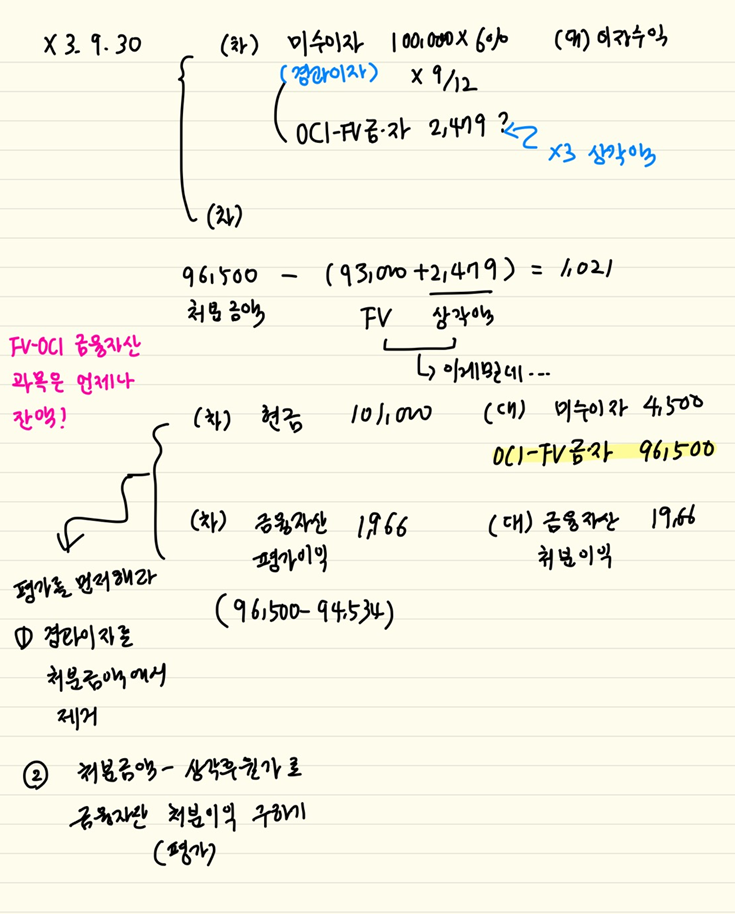 X3.9.30 (차) 미수이자 100,000×6% (대) 이자수익
(경과이자) × 9/12
OCI-FV금·자 2,479 ?
X3 상각액
(차)
96,500 - (93,000+2,479) = 1,021
처분금액 FV 상각액
FV-OCI 금융자산
과목은 언제나
잔액!
↳ 이게뭔데...
(차) 현금 101,000 (대) 미수이자 4,500
OCI-FV금자 96,500
(차) 금융자산 1,966 (대) 금융자산 19,66
평가이익 처분이익
평가를 먼저해라
(96,500-94,534)
① 경과이자를
처분금액에서
제거
② 처분금액 - 상각후원가로
금융자산 처분이익 구하기
(평가)